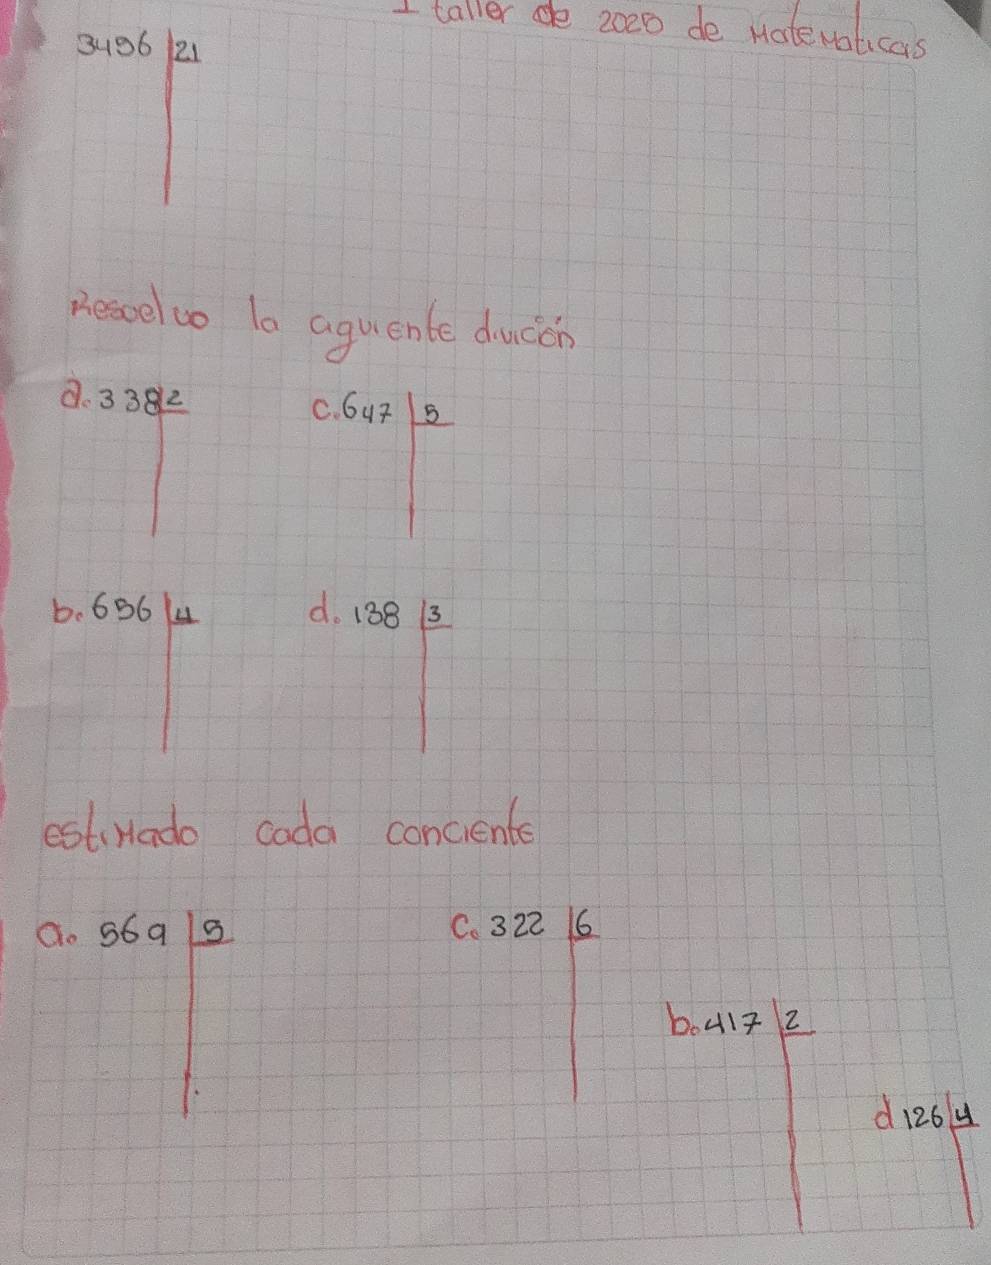 I taller de 2020 de Matematicas
3456 21
Resoelvo la aguiente divicón
a. 338 2 c. 647 5
b. 656 4 d. 138 3
estimado cada conciente
a. 569 5 c. 322 6
b. 417 2
d 126 4